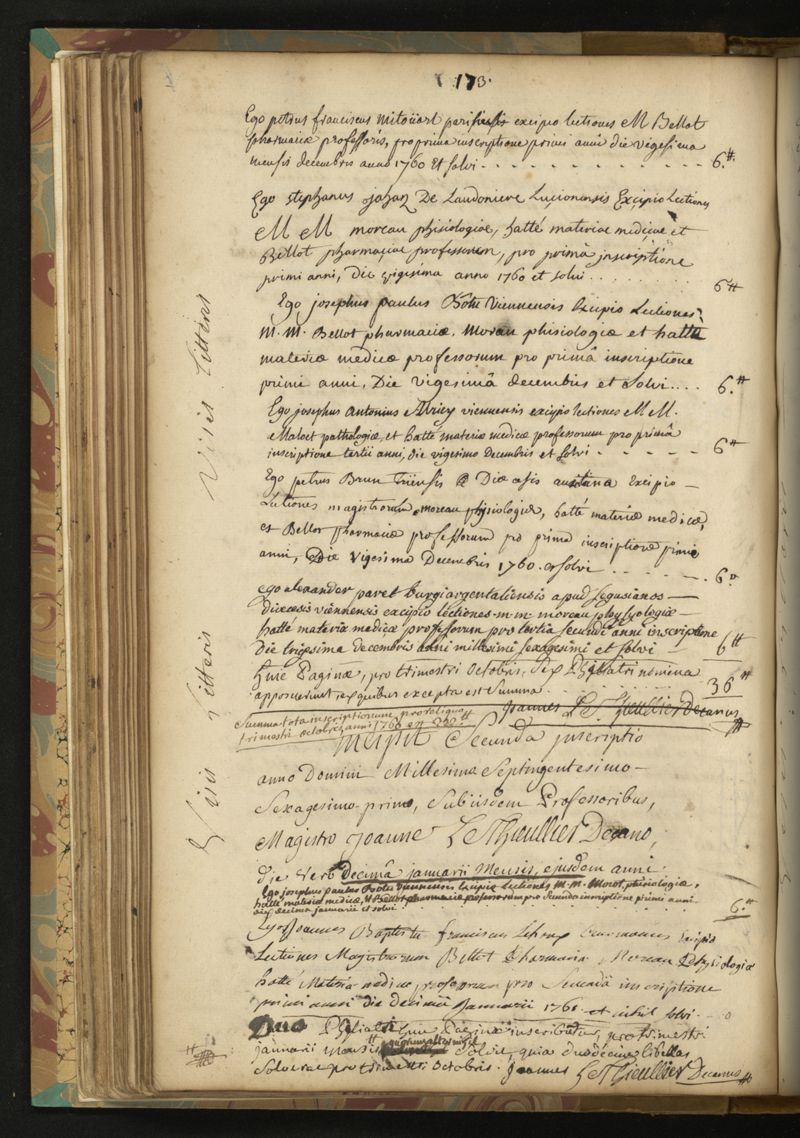 173.
Ego petrus franciscus mitoüart parisiensis excipio lectiones M Bellot
pharmaciæ professoris, pro prima inscriptione primi anni die vigesima
mensis decembris anno 1760 et solvi - - - - - 6.tt
Ego stephanus Jahan De Laudoniere Lucionensis Excipio Lectiones
M M moreau phisiologiæ, hatté materiae medicae et
Bellot pharmaciae professorum, pro primâ inscriptione
primi anni, Die vigesima anno 1760 et solvi . . . . . 6tt
Ego josephus paulus Viennensis Excipio Lectiones
M. M. Bellot pharmaciæ. Moreau phisiologiæ et hatté
materiæ medicæ professorum pro primâ inscriptione
primi anni, Die vigesimâ decembris et solvi.... 6.tt
Ego josephus antonius viennensis excipio lectiones M M.
Maloet pathologiæ, et hatté materiæ medicæ professorum pro primâ
inscriptione tertii anni, die vigesimo decembris et solvi - - - - - 6tt
Ego petrus Brun Diæcesis Excipio -
Lectiones magistrorum moreau physiologiæ, hatté materiæ medicæ,
et Bellot pharmaciæ professorum pro prima inscriptione primi
anni, Die Vigesima Decembris 1760. et solvi - - - - - 6.tt
ego alexander paret burgiargentaliensis apud segusianos -
diæcesis viennensis excipio lectiones m. m. moreau physiologiæ -
hatté materiæ medicæ professorum pro tertia secundi anni inscriptione
Die trigesima decembris anni millesimi sexagesimi et solvi - 6tt
huic Paginæ, pro trimestri octobris, sex Philiatri nomina
apposuerunt, ex quibus excepta est Summa . . . . . 36tt
Joannes Le Thieullier Decanus
Summa tota inscriptionum pro reliquo
trimestri octobris anni 1760 est
incipit Secunda inscriptio
anno Domini Millesimo Septingentesimo -
Sexagesimo-primo, Sub iisdem Professoribus,
Magistro Joanne Le Thieullier Decano,
die vero Decimâ januarii Mensis, ejusdem anni.
Ego josephus paulus Viennensis Excipio Lectiones M. M. phisiologiæ,
hatté materiæ medicæ, et Bellot pharmaciæ professorum pro secunda inscriptione primi anni
die decima januarii et solvi . . . . . 6.tt
Ego Joannes Baptista franciscus excipio
Lectiones Magistrorum Bellot Pharmaciæ, Moreau Physiologiæ
hatté Materiæ medicæ professorum pro Secundâ inscriptione
primi anni die decimâ Januarii 1761. et nihil solvi - - 0
Duo Philiatri huic Paginæ inscribuntur, pro trimestri
januarii mensis quorum alter nihil solvit, quia duodecim libellas
Solverat pro trimestri octobris. Joannes Le Thieullier Decanus
Visis Litteris
Visis Litteris